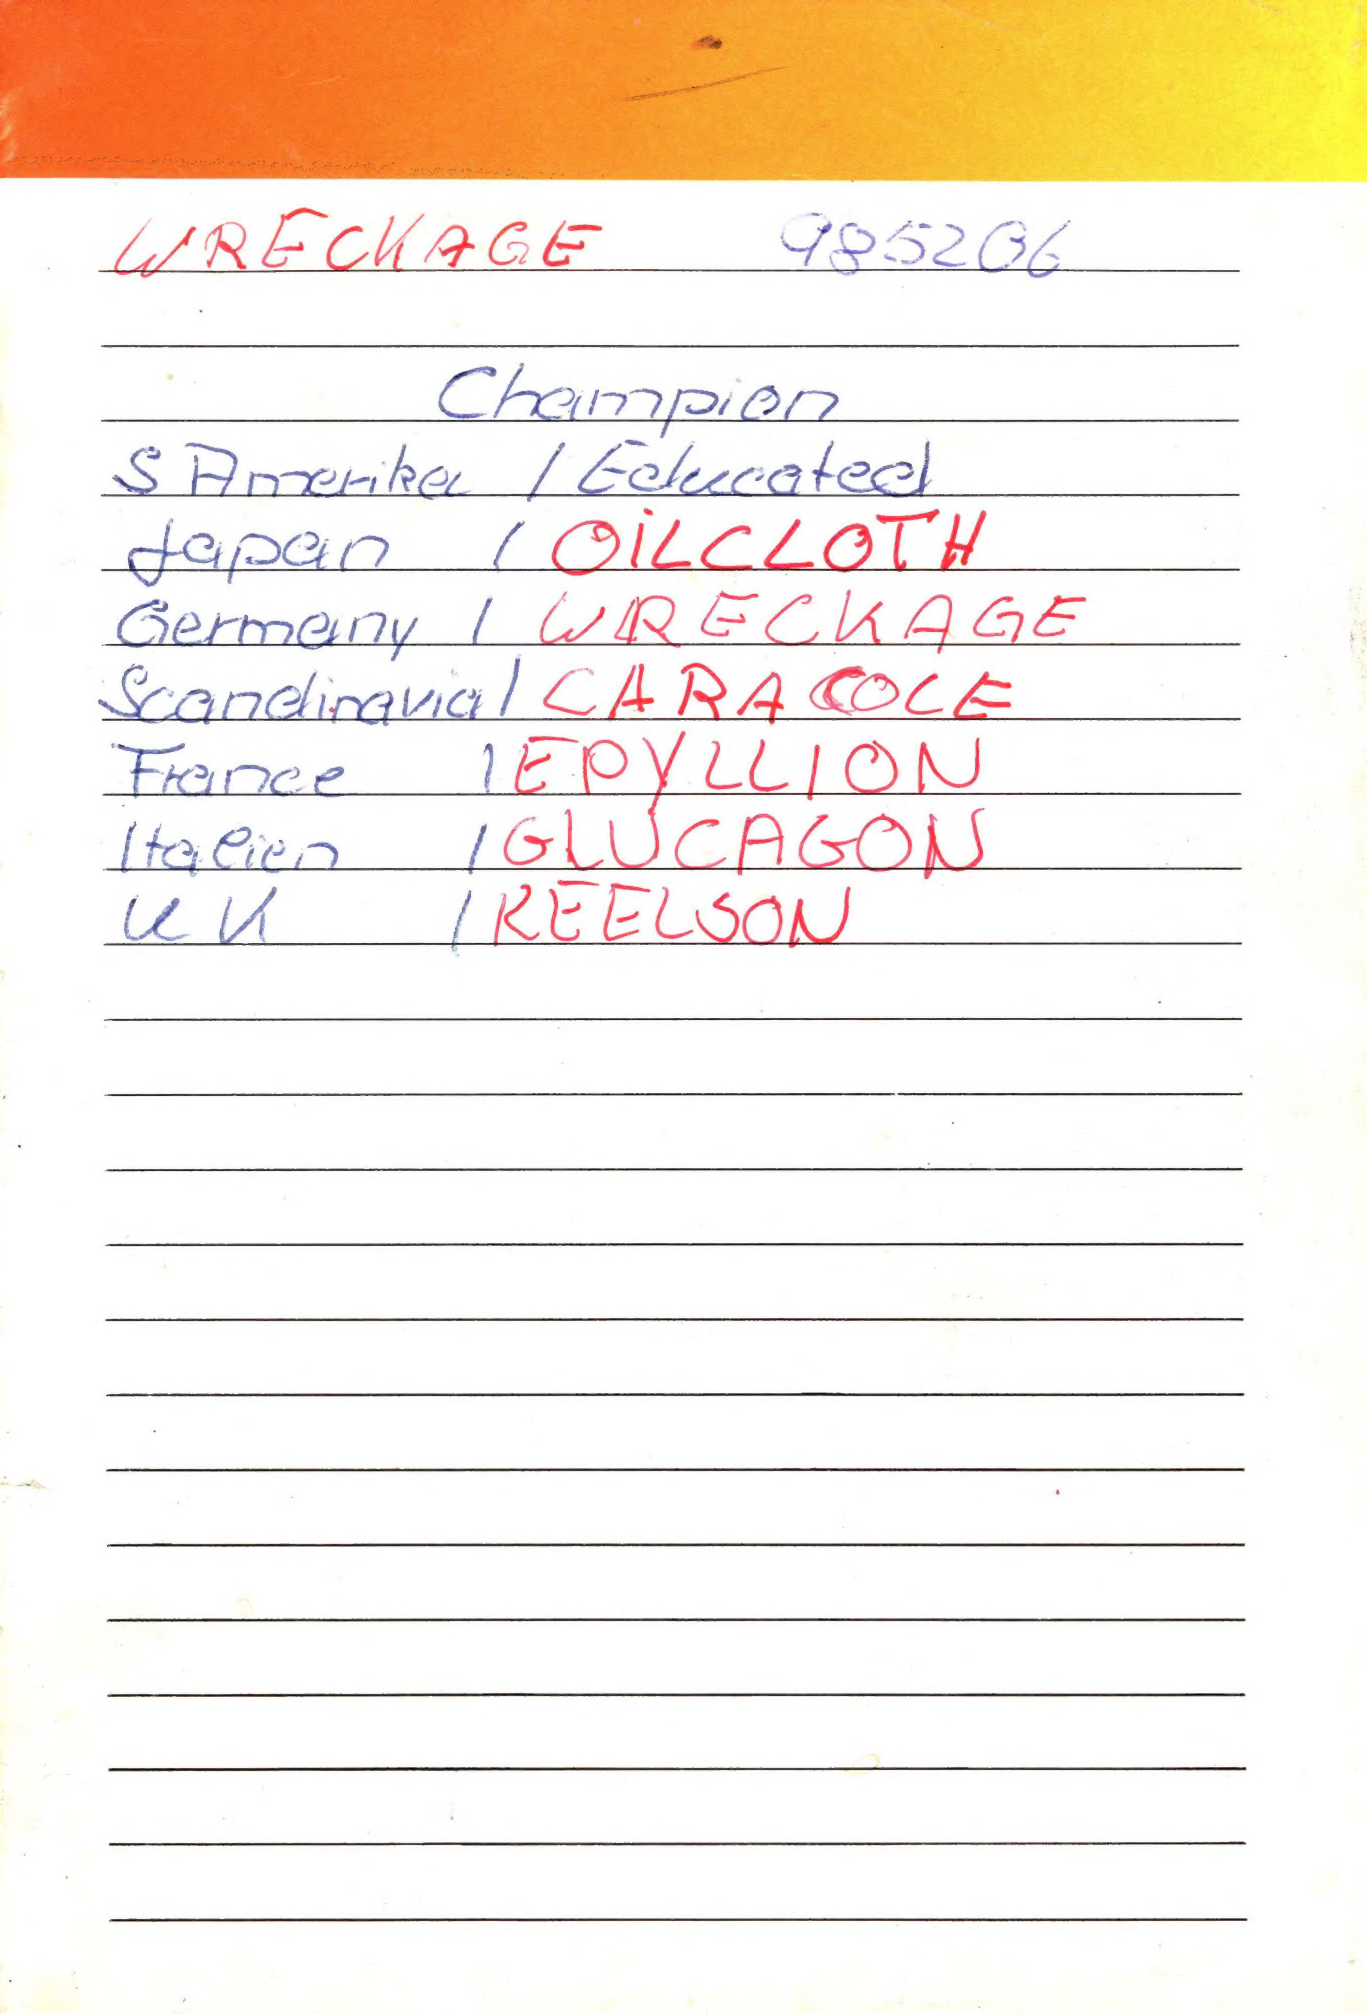 WRECKAGE 985206
Champion
S Amerika / Educated
Japan / OiLCLOTH
Germany / WRECKAGE
Scandinavia / CARACOLE
France / EPYLLION
Italien / GLUCAGON
UK / KEELSON